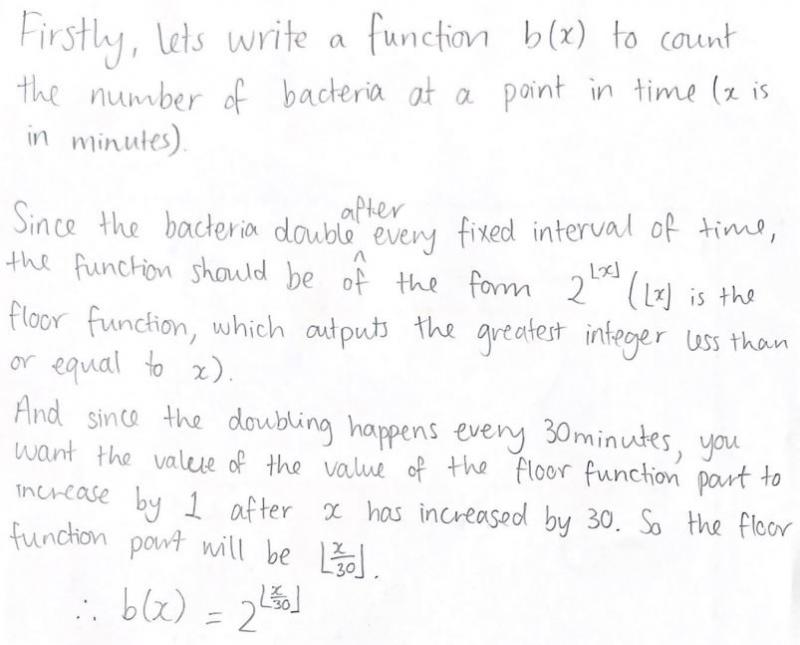 Firstly, lets write a function b(x) to count
the number of bacteria at a point in time (x is
in minutes).
Since the bacteria double after every fixed interval of time,
the function should be of the form 2^⌊x⌋ (⌊x⌋ is the
floor function, which outputs the greatest integer less than
or equal to x).
And since the doubling happens every 30minutes, you
want the value of the value of the floor function part to
increase by 1 after x has increased by 30. So the floor
function part will be ⌊x/30⌋.
∴ b(x) = 2^⌊x/30⌋